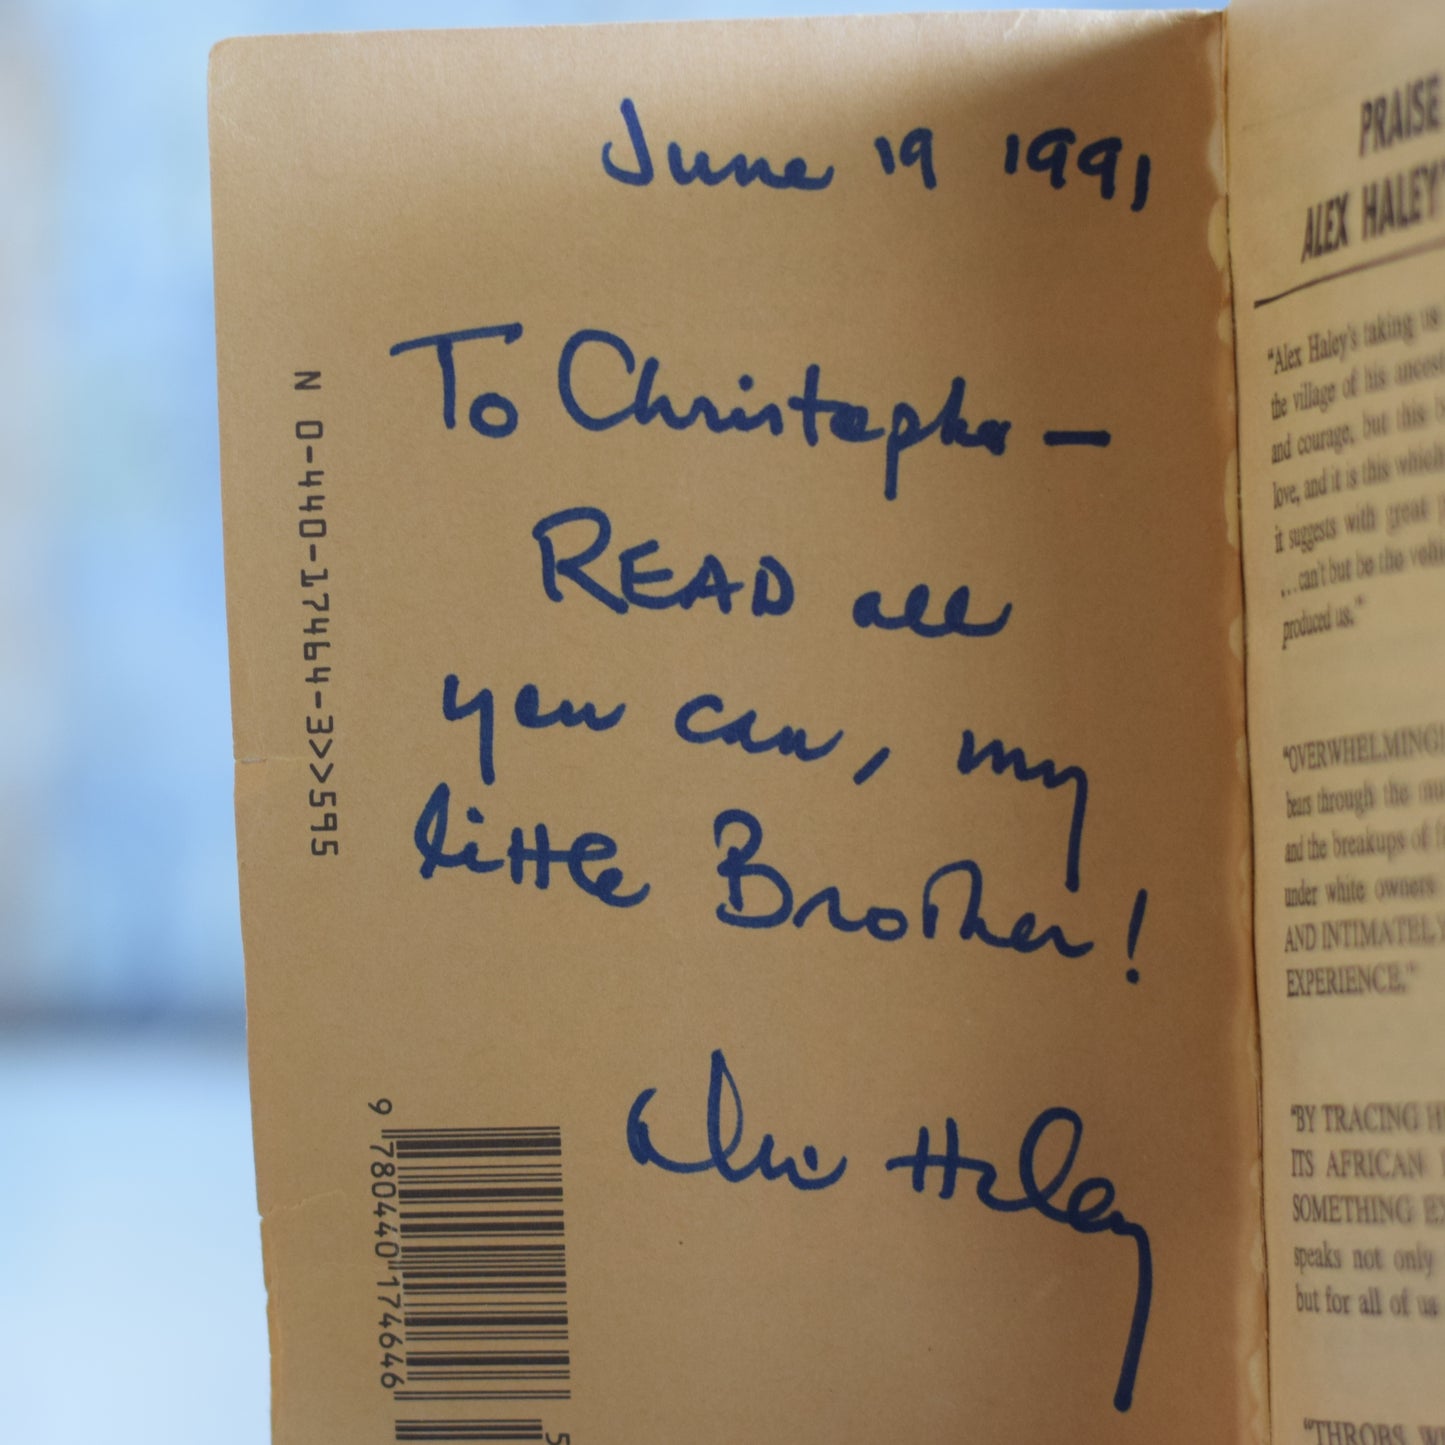 June 19 1991
To Christopher —
READ all
you can, my
little Brother!
Alex Haley
N 0-440-17464-3>>595
9 780440 174646
5
PRAISE
ALEX HALEY'
"Alex Haley's taking us
the village of his ancest
and courage, but this b
love, and it is this which
it suggests with great
...can't but be the vehi
produced us."
"OVERWHELMINGL
bears through the mu
and the breakups of f
under white owners
AND INTIMATELY
EXPERIENCE."
"BY TRACING H
ITS AFRICAN
SOMETHING EX
speaks not only
but for all of us
"THROBS W